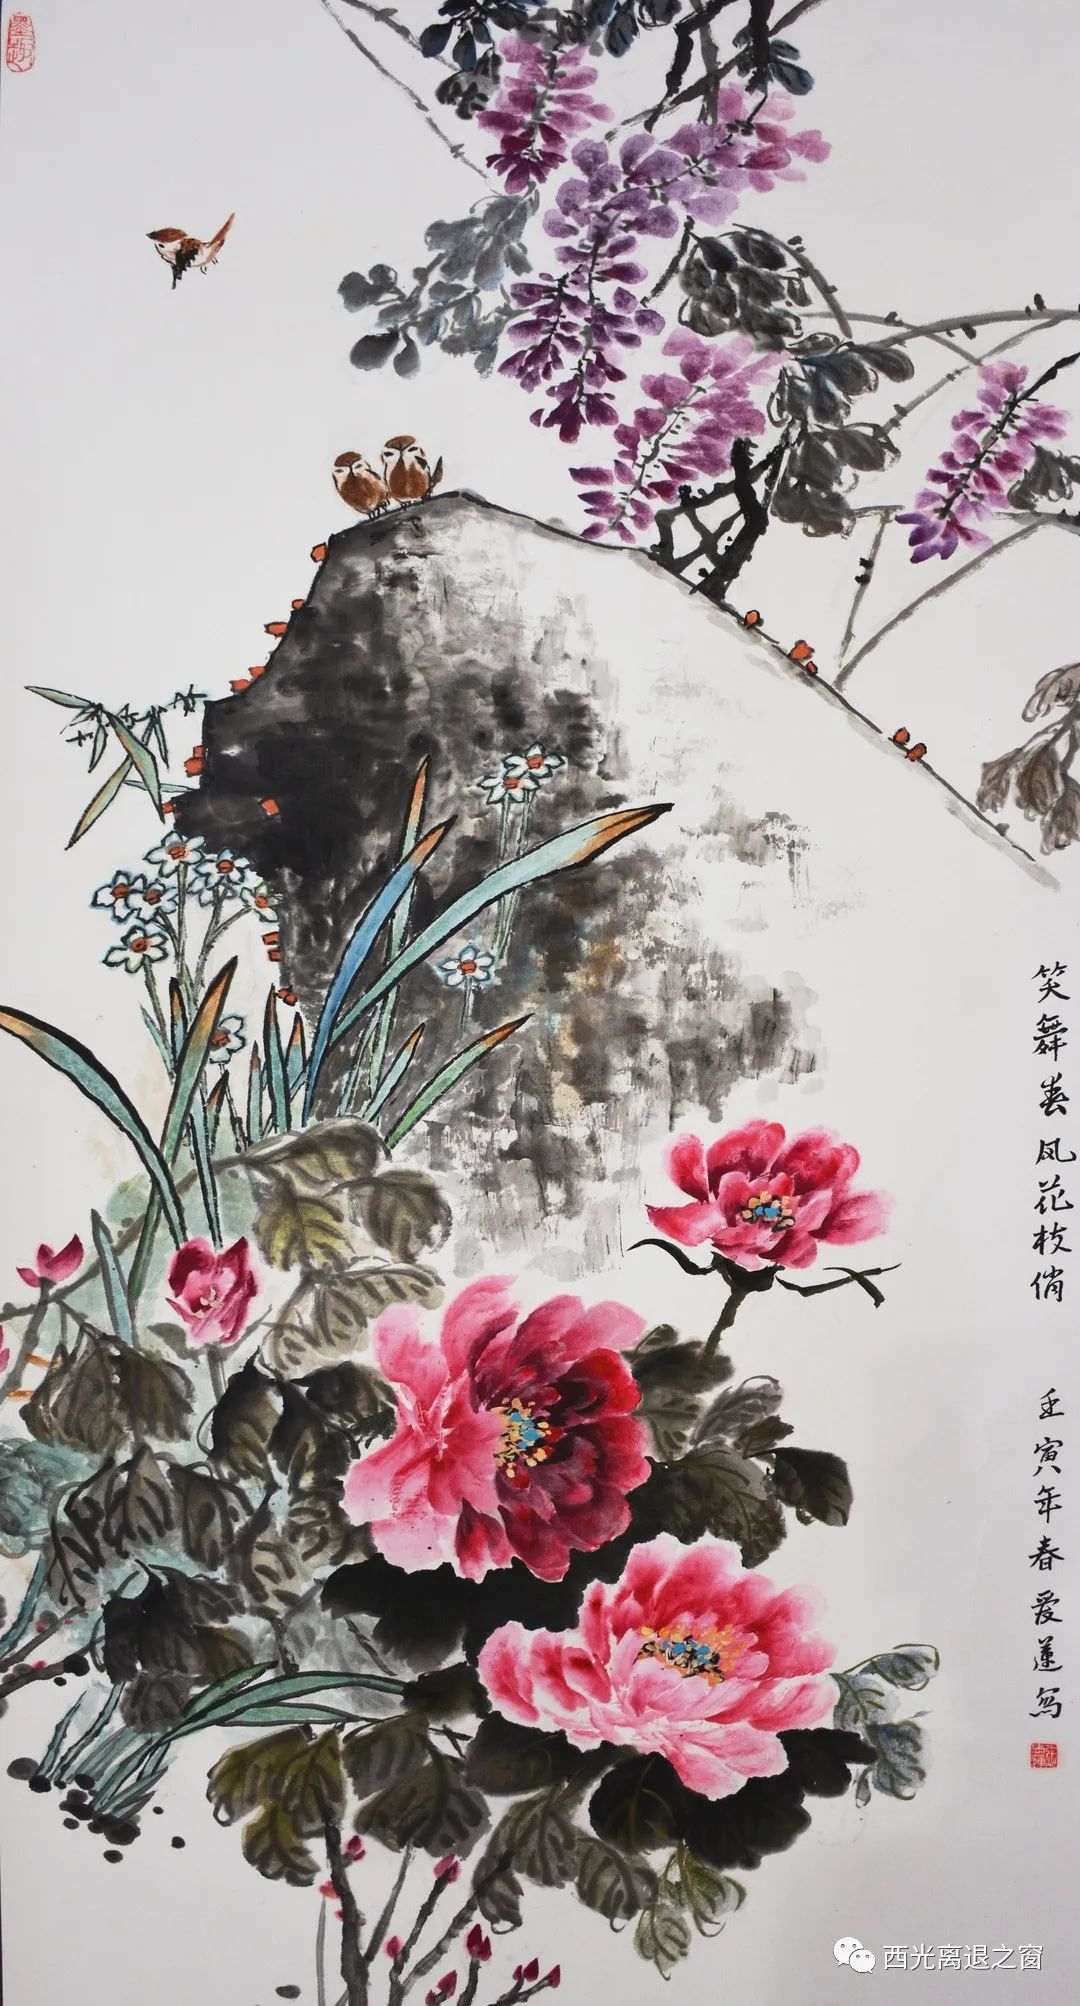 笑舞春风花枝俏
壬寅年春爱莲写
西光离退之窗